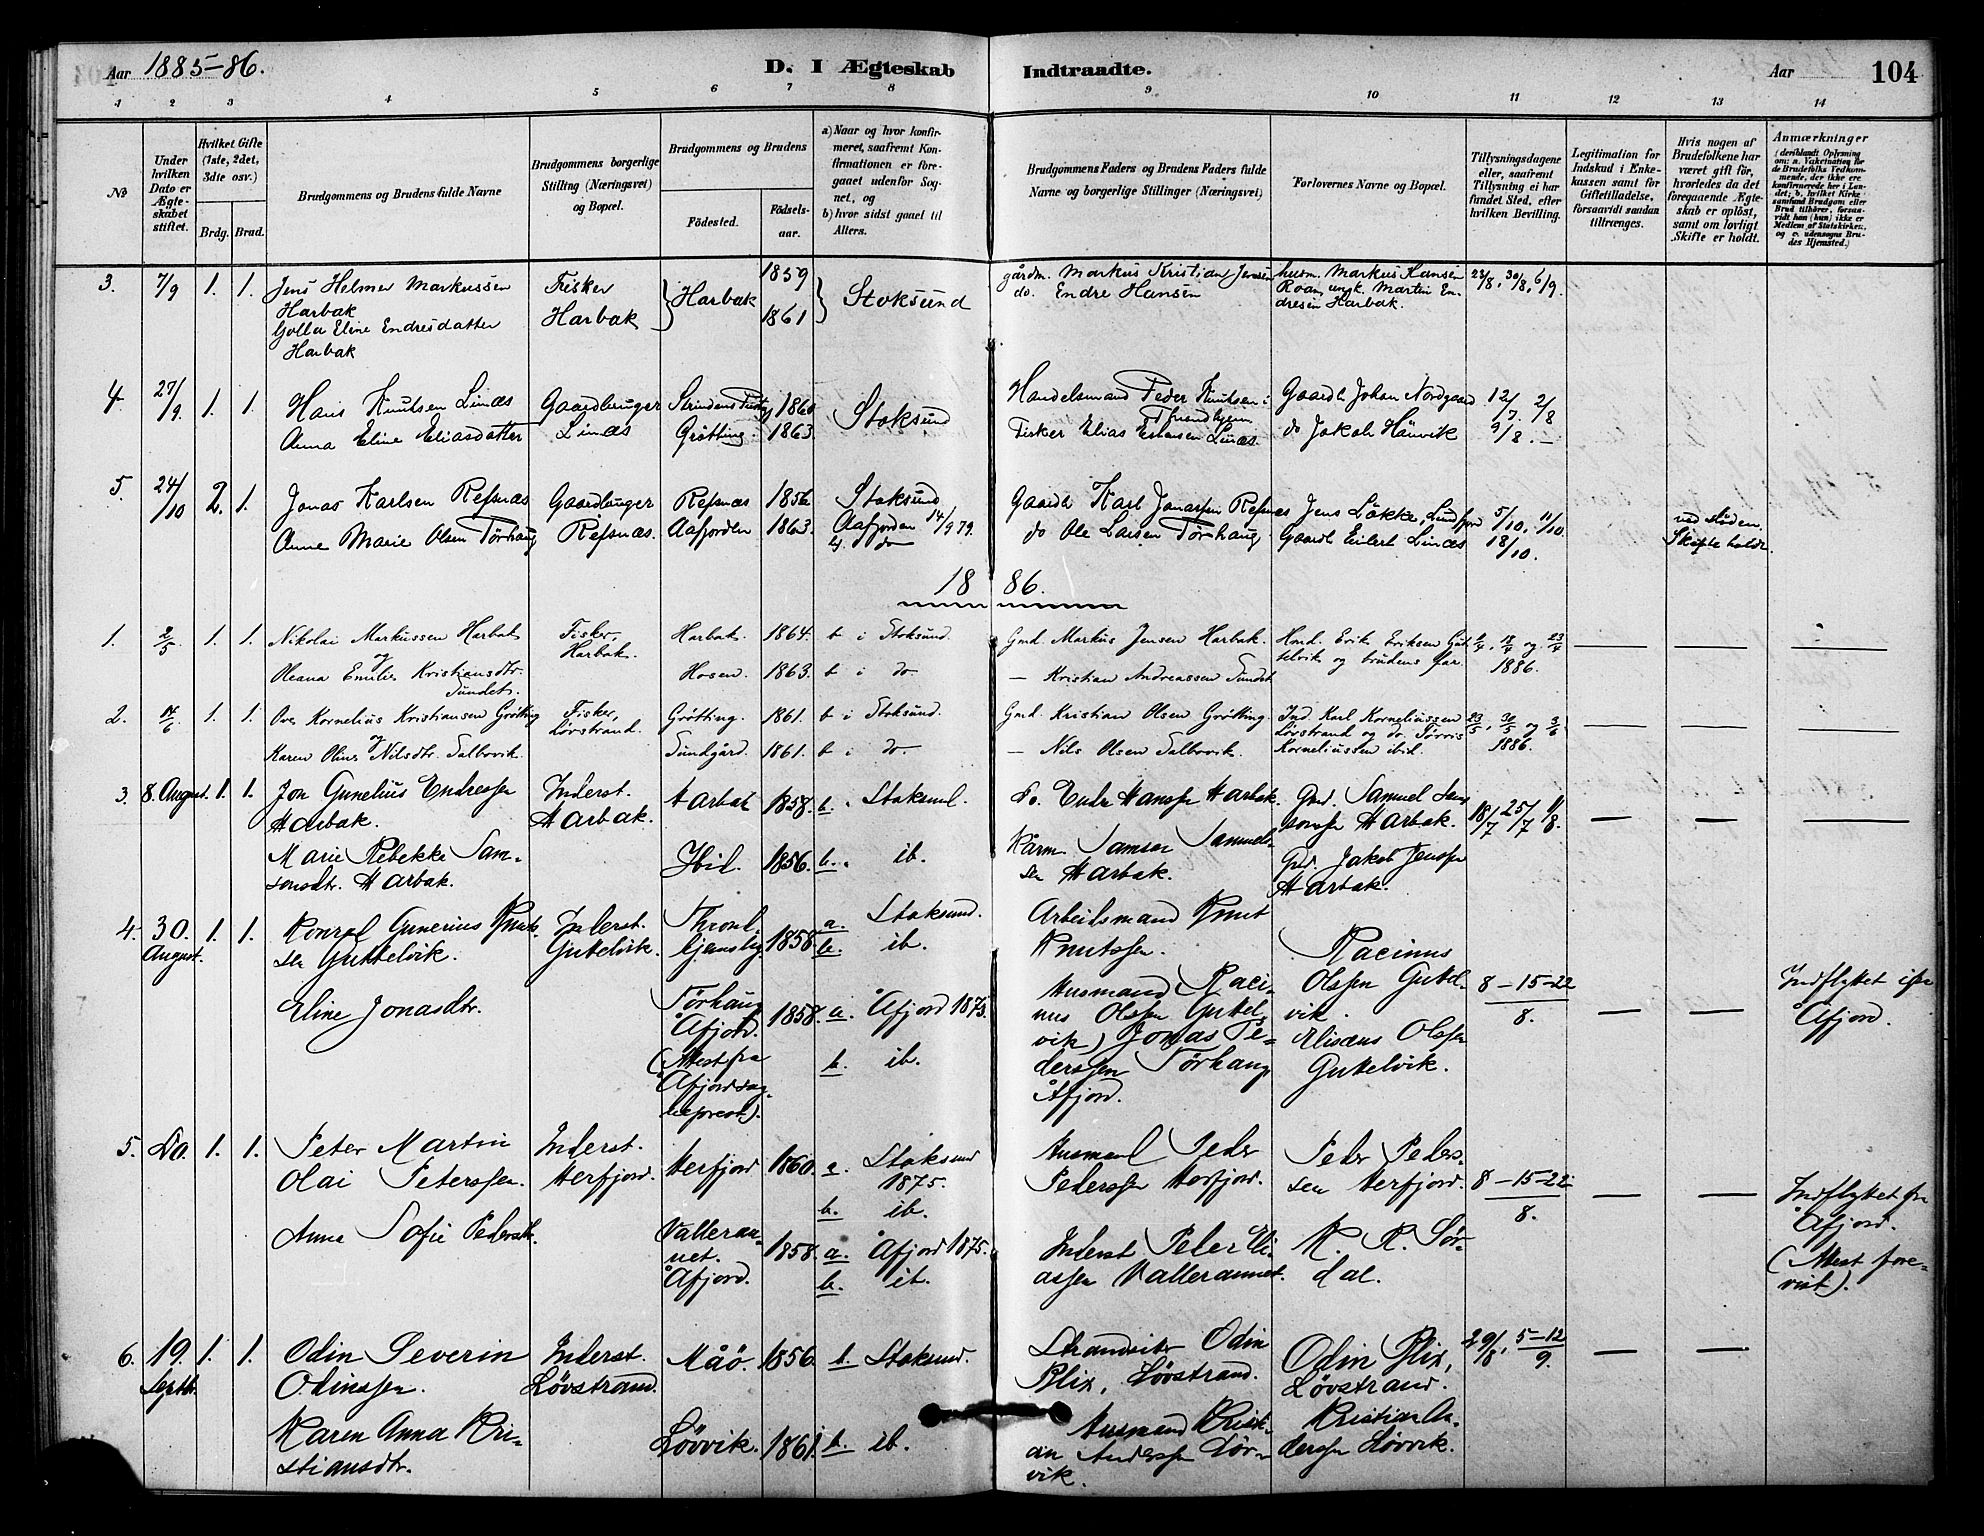 Aar 1885-86.
D. I Ægteskab Indtraadte.
Aar
104
1 2 3 4 5 6 7 8 9 10 11 12 13 14
No
Under hvilken Dato er Ægteskabet stiftet.
Hvilket Gifte (1ste, 2det, 3die osv.)
Brdg. Brud.
Brudgommens og Brudens fulde Navne
Brudgommens borgerlige Stilling (Næringsvei) og Bopæl.
Brudgommens og Brudens
Fødested.
Fødselsaar.
a) Naar og hvor konfirmeret, saafremt Konfirmationen er foregaaet udenfor Sognet, og
b) hvor sidst gaaet til Alters.
Brudgommens Faders og Brudens Faders fulde Navne og borgerlige Stillinger (Næringsvei)
Forlovernes Navne og Bopæl.
Tillysningsdagene eller, saafremt Tillysning ei har fundet Sted, efter hvilken Bevilling.
Legitimation for Indskud i Enkekassen samt for Giftetilladelse, forsaavidt saadan tiltrænges.
Hvis nogen af Brudefolkene har været gift før, hvorledes da det foregaaende Ægteskab er opløst, samt om lovligt Skifte er holdt.
Anmærkninger
(deriblandt Oplysning om: a. Vakcination for de Brudefolks Vedkommende, der ikke ere konfirmerede her i Landet; b. hvilket Kirkesamfund Brudgom eller Brud tilhører, forsaavidt han (hun) ikke er Medlem af Statskirken, og c. udensogns Brudes Hjemsted.)
3. 7/9 1. 1. Jens Helmer Markussen Harbak
Golla Eline Endresdatter Harbak
Fisker Harbak
Harbak
1859
1861
Stoksund
gårdm. Markus Kristian Jensen
do. Endre Hansen
husm. Markus Hansen
Roan, ungk. Martin Endresen Harbak.
23/8, 30/8, 6/9.
4. 27/9. 1. 1. Hans Knutsen Linæs
Anna Eline Eliasdatter
Gaardbruger Linæs
Strindens
Grøtting.
1860
1863.
Stoksund
Handelsmand Peder Knutsen i Throndhjem
Fisker Elias Estensen Linæs.
Gaardb Johan Nordgaard
do Jakob Hånvik
12/7. 2/8
9/8. -
5. 24/10 2. 1. Jonas Karlsen Refsnæs
Anne Marie Olsen Tørhaug
Gaardbruger Refsnæs.
Refsnæs
Aafjorden
1856
1863.
Stoksund
Aafjorden 14/9 79.
b. do
Gaardb Karl Jonassen Refsnæs
do Ole Larsen Tørhaug
Jens Løkke,
Gaardb Eilert Linæs
5/10. 11/10
18/10.
ved døden. Skifte holdt.
1886.
1. 2/5 1. 1. Nikolai Markussen Harbak
og
Oleana Emilie Kristiansdtr. Sundet.
Fisker, Harbak.
Harbak.
Hosen.
1864.
1863.
b i Stoksund.
b i do
Gmd. Markus Jensen Harbak.
— Kristian Andreassen Sundet
Hmd. Erik Eriksen Gutelvik og brudens far.
1886.
2. 14/6 1. 1. Ove Kornelius Kristiansen Grøtting
og
Karen Oline Nilsdtr. Salbovik.
Fisker, Løvstrand.
Grøtting.
Sundgård.
1861.
1861.
b i Stoksund.
b i do
Gmd. Kristian Olsen Grøtting.
— Nils Olsen Salbovik.
Ind. Karl Korneliussen Løvstrand og do. Korneliussen ibid.
23/5, 30/5 og 3/6 1886.
3. 8. August. 1. 1. Jon Gunelius Endressen Harbak.
Marie Rebekke Samsonsdtr. Harbak.
Inderst. Harbak.
Harbak
Ibid.
1858.
1856.
b. Stoksund.
b. ib.
Do. Endre Hanssen Harbak.
Kårm. Samson Samuelsen Harbak.
Gmd. Samuel Samsonsen Harbak.
Gmd. Jakob Jenssen Harbak.
18/7 25/7 1/8.
4. 30. August. 1. 1. Konrad Gunerius Knutssen Guttelvik.
Eline Jonasdtr.
Inderst. Gutelvik.
Throndhjemsby.
Tørhaug Åfjord.
(Attest fra Åfjords sogneprest).
1858.
1858.
a. Stoksund.
b. ib.
a. Åfjord 1873.
b. ib.
Arbeidsmand Knut Knutssen.
(Husmand Racinus Olssen Gutelvik) Jonas Pederssen Tørhaug Åfjord.
Racinus Olssen Gutelvik.
Elisæus Olssen Gutelvik.
8 – 15 – 22
8.
Indflyttet ifra Åfjord.
5. Do. 1. 1. Peter Martin Olai Peterssen.
Anna Sofie Pedersdtr.
Inderst. Herfjord.
Herfjord
Vallerannet. Åfjord.
1860.
1858.
a. Stoksund 1875.
b. ib.
a. Åfjord 1875.
b. ib.
Husmand Peder Pederssen Herfjord.
Inderst Peter Eliassen Vallerannet.
Peder Pederssen Herfjord.
K. R. Sørdal.
8 – 15 – 22
8.
Indflyttet fra Åfjord.
(Attest forevist).
6. 19. Septbr. 1. 1. Odin Severin Odinssen.
Karen Anna Kristiansdtr.
Inderst. Løvstrand.
Måø.
Løvvik.
1856.
1861.
b. Stoksund.
b. ib.
Strandsitter Odin Blix, Løvstrand.
Husmand Kristian Anderssen Lørvik.
Odin Blix, Løvstrand.
Kristian Anderssen Lørvik.
29/8, 5–12
9.